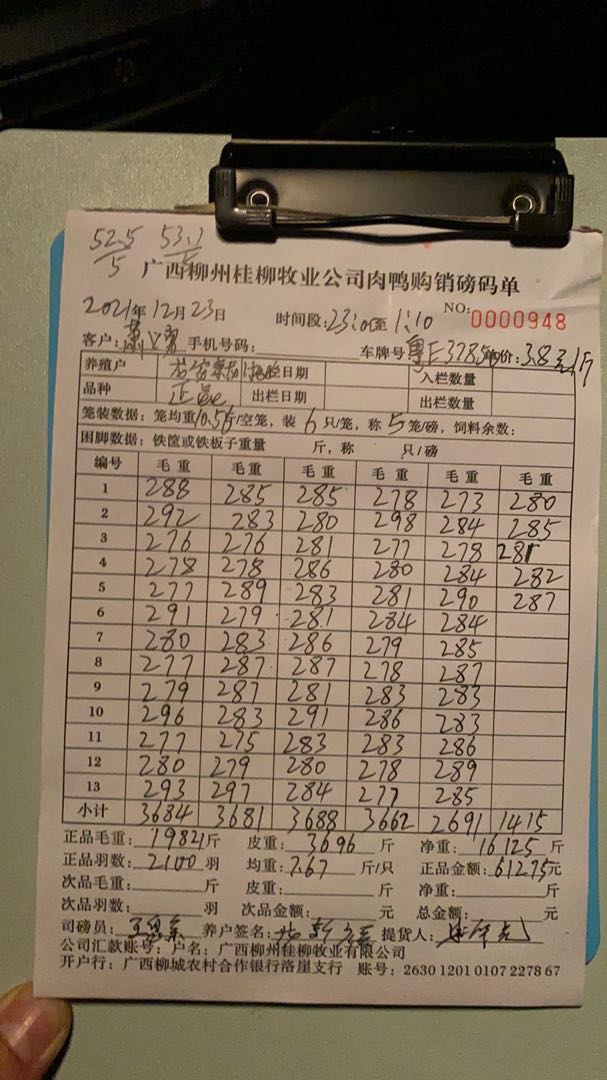 52.5/5 53.1/5
广西柳州桂柳牧业公司肉鸭购销磅码单
2021年12月23日 时间段:23:10至1:10 NO: 0000948
客户: 手机号码: 车牌号粤E3785 单价:3.83元/斤
养殖户 日期 入栏数量
品种 正品 出栏日期 出栏数量
笼装数据:笼均重10.56斤/空笼,装6只/笼,称5笼/磅,饲料余数:
困脚数据:铁筐或铁板子重量 斤,称 只/磅
编号 毛重 毛重 毛重 毛重 毛重 毛重
1 288 285 285 278 273 280
2 292 283 280 298 284 285
3 276 276 281 277 278 281
4 278 278 286 280 284 282
5 277 289 283 281 290 287
6 291 279 281 284 284
7 280 283 286 279 285
8 277 287 287 278 287
9 279 287 281 283 283
10 296 283 291 286 283
11 277 275 283 283 286
12 280 279 280 278 289
13 293 297 284 277 285
小计 3684 3681 3688 3662 2691 1415
正品毛重:19821斤 皮重:3696斤 净重:16125斤
正品羽数:2100羽 均重:7.67斤/只 正品金额:61275元
次品毛重: 斤 皮重: 斤 净重: 斤
次品羽数: 羽 次品金额: 元 总金额: 元
司磅员: 养户签名: 提货人:
公司汇款账号:户名:广西柳州桂柳牧业有限公司
开户行:广西柳城农村合作银行洛崖支行 账号:2630 1201 0107 2278 67